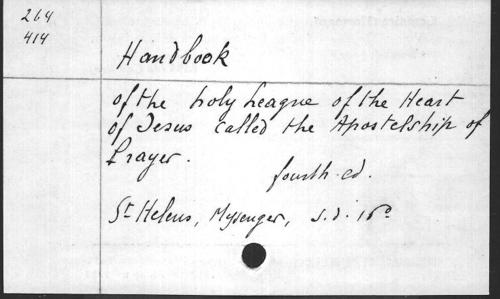 264
414
Handbook
of the holy League of the Heart
of Jesus called the Apostelship of
Prayer.
fourth ed.
St Helens, Mysenger, s.d. 16º